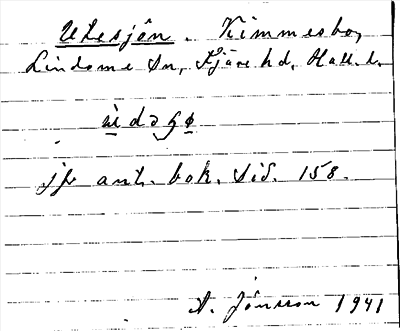 Utesjön. Kimmesbo,
Lindome sn, Fjäre hd, Hall. l.
jfr ant. bok. sid. 158.
A. Jönsson 1941